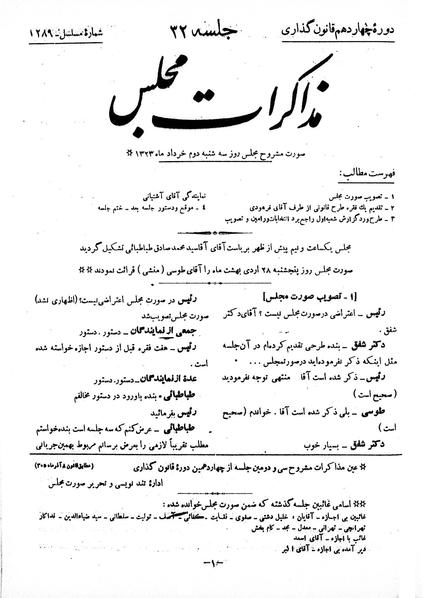 دورهٔ چهاردهم قانون گذاری
جلسه ۳۲
شمارهٔ مسلسل ـ ۱۲۸۹
مذاکرات مجلس
صورت مشروح مجلس روز سه شنبه دوم خرداد ماه ۱۳۲۳ ※
فهرست مطالب:
۱ ـ تصویب صورت مجلس
۲ ـ تقدیم یك فقره طرح قانونی از طرف آقای فرهودی
۳ ـ طرح ورد گزارش شعبه اول راجع برد انتخابات ورامین و تصویب
نمایندگی آقای آشتیانی
۴ ـ موقع ودستور جلسه بعد ـ ختم جلسه
مجلس یکساعت و نیم پیش از ظهر بریاست آقای آقاسید محمد صادق طباطبائی تشکیل گردید
صورت مجلس روز پنجشنبه ۲۸ اردی بهشت ماه را آقای طوسی (منشی) قرائت نمودند ※※
[۱ ـ تصویب صورت مجلس]
رئیس ـ اعتراضی درصورت مجلس نیست ؟ آقای دکتر
شفق .
دکتر شفق ـ بنده طرحی تقدیم کرده‌ام در آن جلسه
مثل اینکه ذکر نفرموده‌اید درصورتمجلس ...
رئیس ـ ذکر شده است آقا منتهی توجه نفرمودید
(صحیح است)
طوسی ـ بلی ذکر شده است آقا . خواندم (صحیح
است)
دکتر شفق ـ بسیار خوب
رئیس در صورت مجلس اعتراضی نیست؟ (اظهاری نشد)
صورت مجلس تصویب شد
جمعی از نمایندگان ـ دستور . دستور
رئیس ـ هفت فقره قبل از دستور اجازه خواسته شده
است .
عدهٔ از نمایندگان ـ دستور . دستور
طباطبائی ـ بنده باورود در دستور مخالفم
رئیس بفرمائید
طباطبائی ـ عرض کنم که سه جلسه است بنده خواستم
مطلب تقریباً لازمی را بعرض برسانم مربوط بهمین جریانی
※ عین مذاکرات مشروح سی و دومین جلسه از چهاردهمین دورهٔ قانون گذاری
(مطابق قانون ۸ آذرماه ۳۰۵)
ادارهٔ تند نویسی و تحریر صورت مجلس
※※ اسامی غائبین جلسه گذشته که ضمن صورت مجلس خوانده شده:
غائبین بی اجازه ـ آقایان : خلیل دشتی ـ صفوی ـ نقابت ـ ـ آصف ـ تولیت ـ سلطانی ـ سید ضیاءالدین ـ فداکار
تهرانچی ـ تهرانی ـ معدل ـ مجد ـ کام بخش
غائب با اجازه ـ آقای اسعد
دیر آمده بی اجازه ـ آقای اکبر
ـ۱ـ